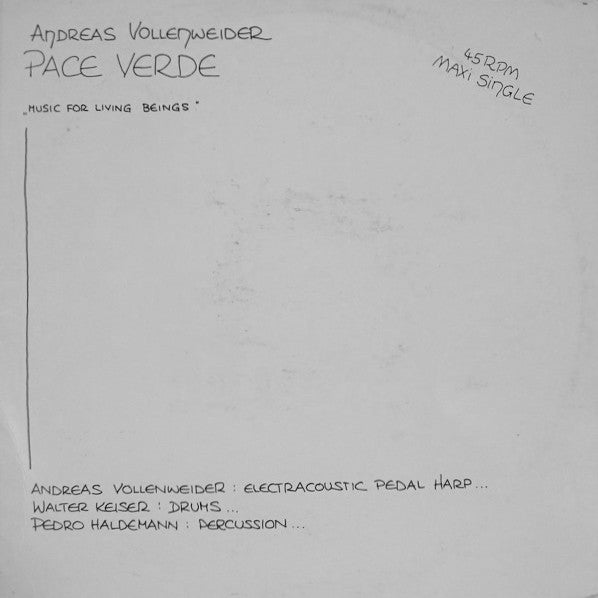 Andreas Vollenweider
PACE VERDE
45 RPM
MAXI SINGLE
„MUSIC FOR LIVING BEINGS"
ANDREAS VOLLENWEIDER : ELECTRACOUSTIC PEDAL HARP...
WALTER KEISER : DRUMS...
PEDRO HALDEMANN : PERCUSSION...